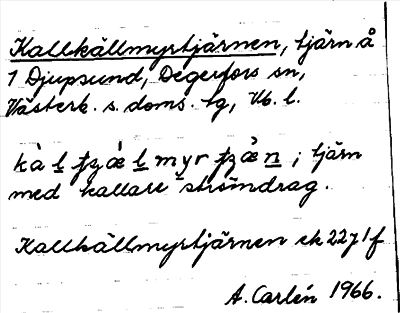 Kallkällmyrtjärnen, tjärn å
1 Djupsund, Degerfors sn,
Västerb. s. doms. tg, Vb. l.
med kallare strömdrag.
Kallkällmyrtjärnen ek 22J1f
A. Carlén 1966.